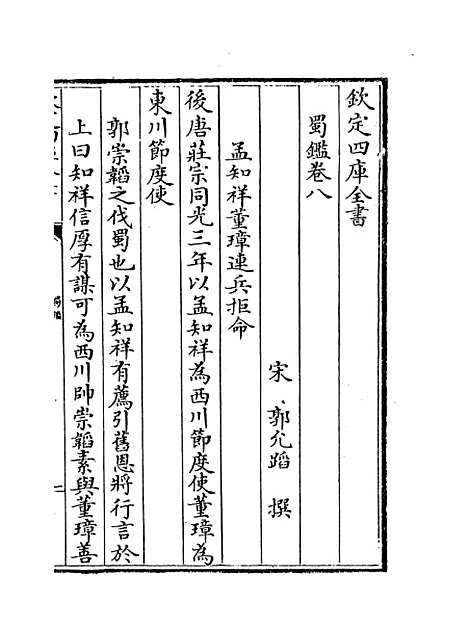 欽定四庫全書
蜀鑑卷八
宋 郭允蹈 撰
孟知祥董璋連兵拒命
後唐莊宗同光三年以孟知祥為西川節度使董璋為
東川節度使
郭崇韜之伐蜀也以孟知祥有薦引舊恩將行言於
上曰知祥信厚有謀可為西川帥崇韜素與董璋善
蜀鑑